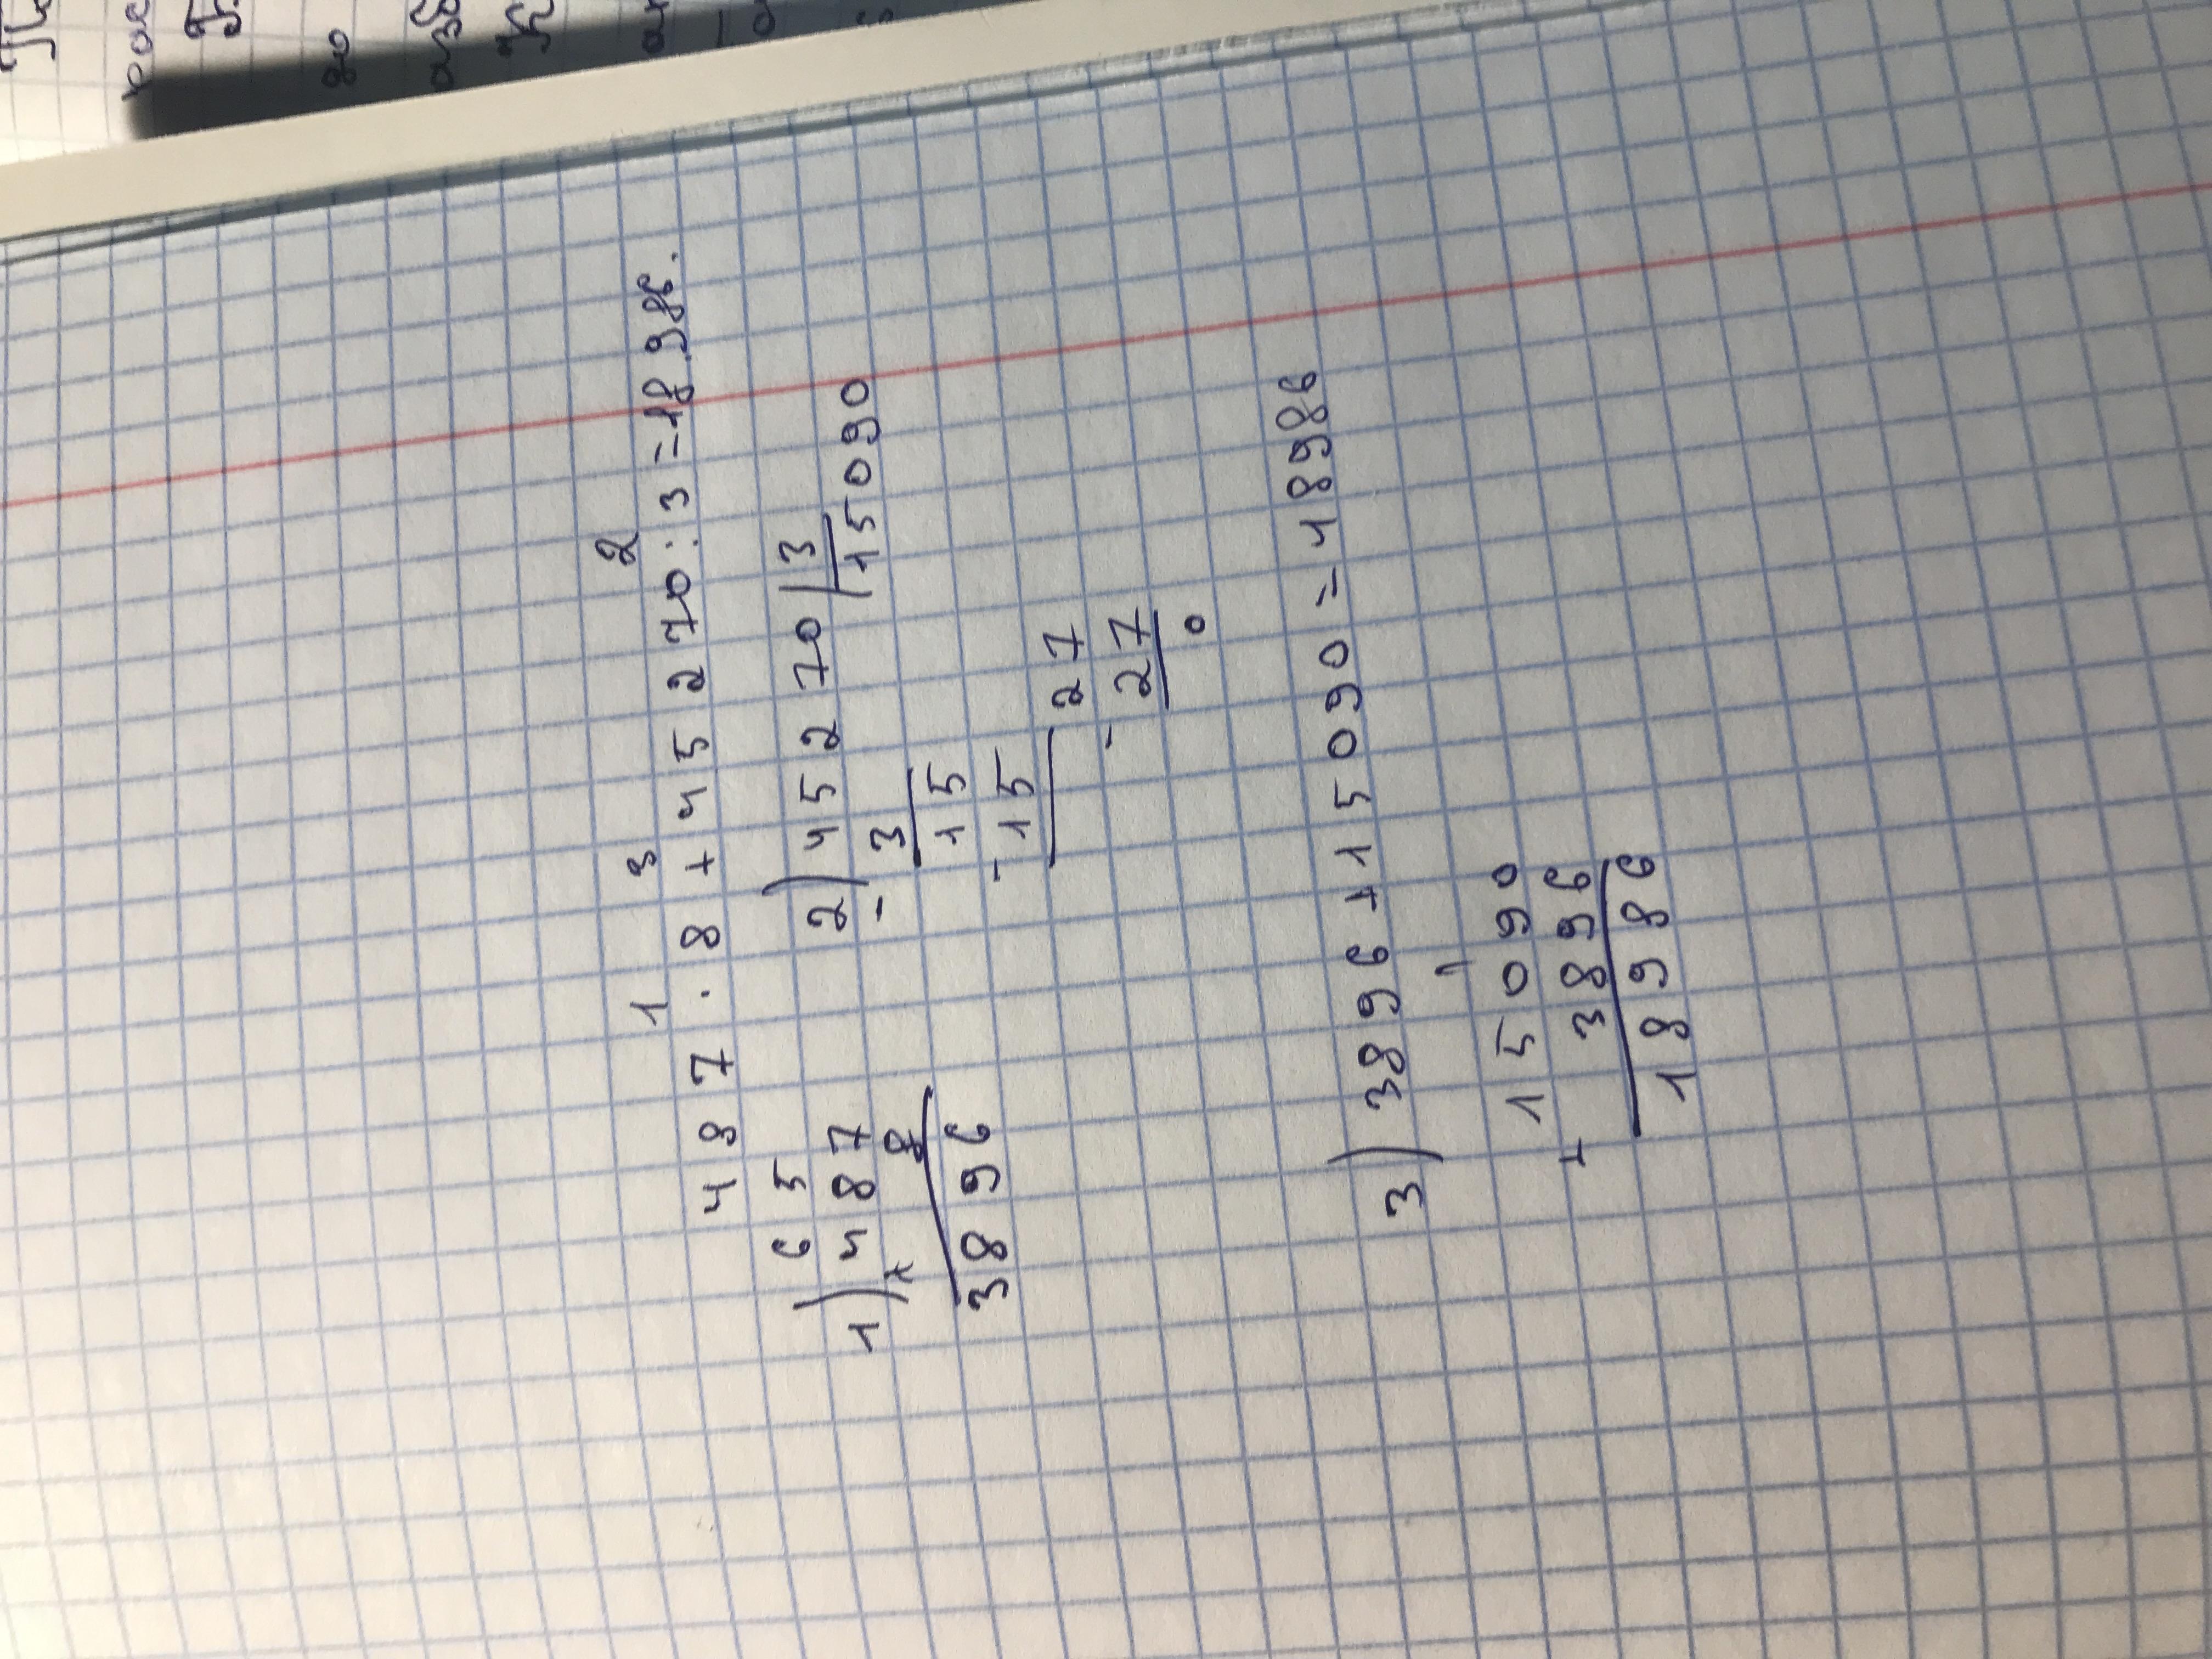 1 3 2
487 · 8 + 45270 : 3 = 18986.
6 5
1) 487
× 8
3896
2) 45270 | 3
- 3 15090
15
- 15
27
- 27
0
3) 3896 + 15090 = 18986
1
15090
+ 3896
18986